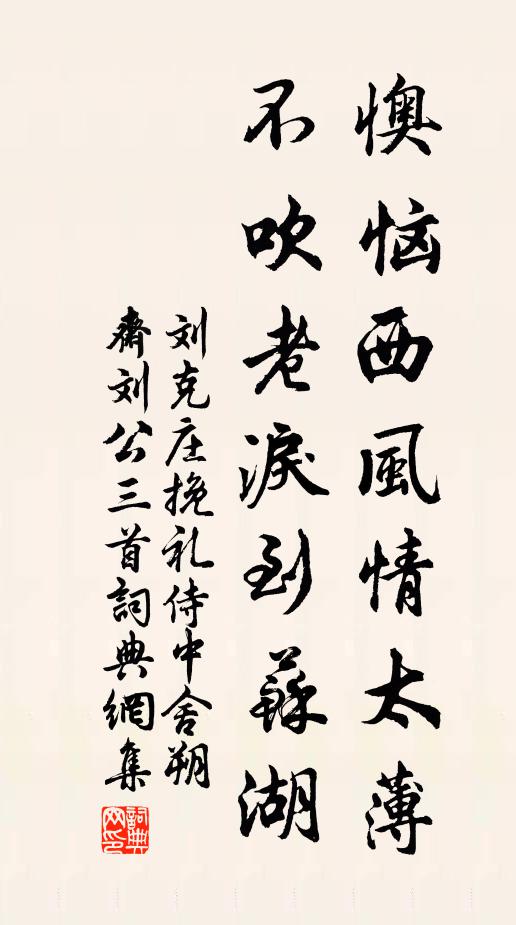 懊恼西風情太薄
不吹老淚到蘇湖
刘克庄挽礼侍中舍朔
齋刘公三首詞典網集
詞典网印